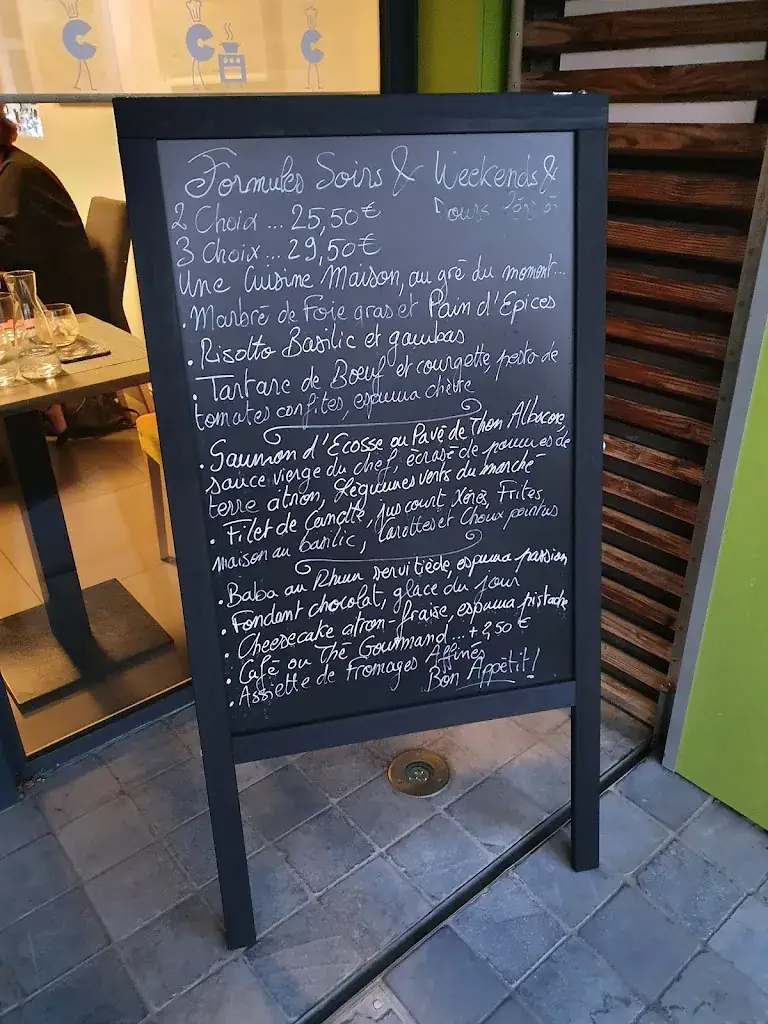 Formules Soirs & Weekends &
2 Choix ... 25,50€ Jours
3 Choix ... 29,50€
Une Cuisine Maison, au gré du moment...
. Marbré de Foie gras et Pain d'Epices
. Risotto Basilic et gambas
. Tartare de Boeuf et courgette, pesto de
tomates confites, espuma chèvre
. Saumon d'Ecosse ou Pavé de Thon Albacore,
sauce vierge du chef, écrasé de pommes de
terre citron, Légumes verts du marché
. Filet de Canette, jus court Xérès, Frites
maison au basilic, Carottes et Choux pointus
. Baba au Rhum servi tiède, espuma passion
. Fondant chocolat, glace du jour
. Cheesecake citron-fraise, espuma pistache
. Café ou Thé Gourmand... + 2,50 €
. Assiette de Fromages Affinés
Bon Appétit!